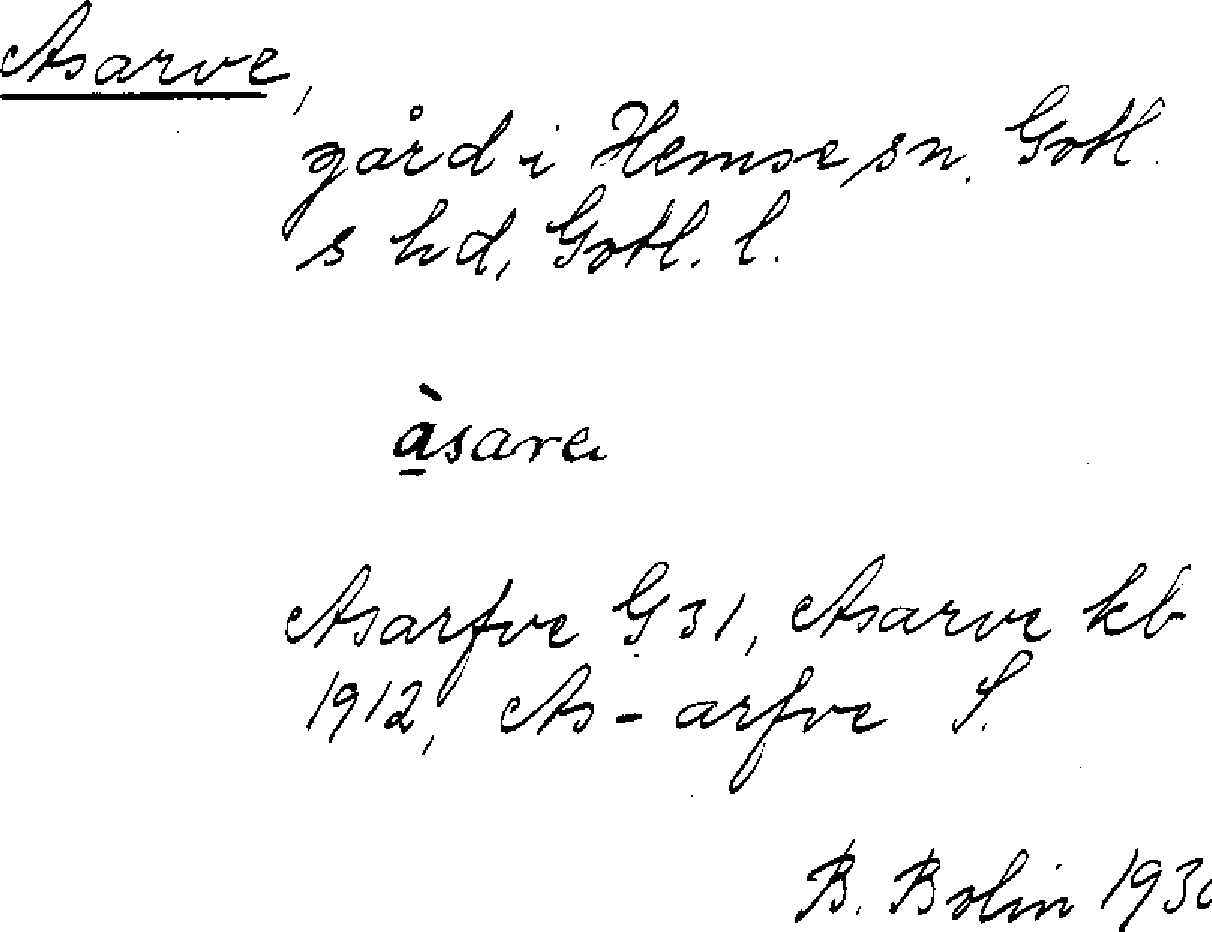 Asarve,
gård i Hemse sn. Gotl.
s hd, Gotl. l.
àsarva
Asarfve G 31, Asarve kb
1912, As-arfve S.
B. Bolin 193